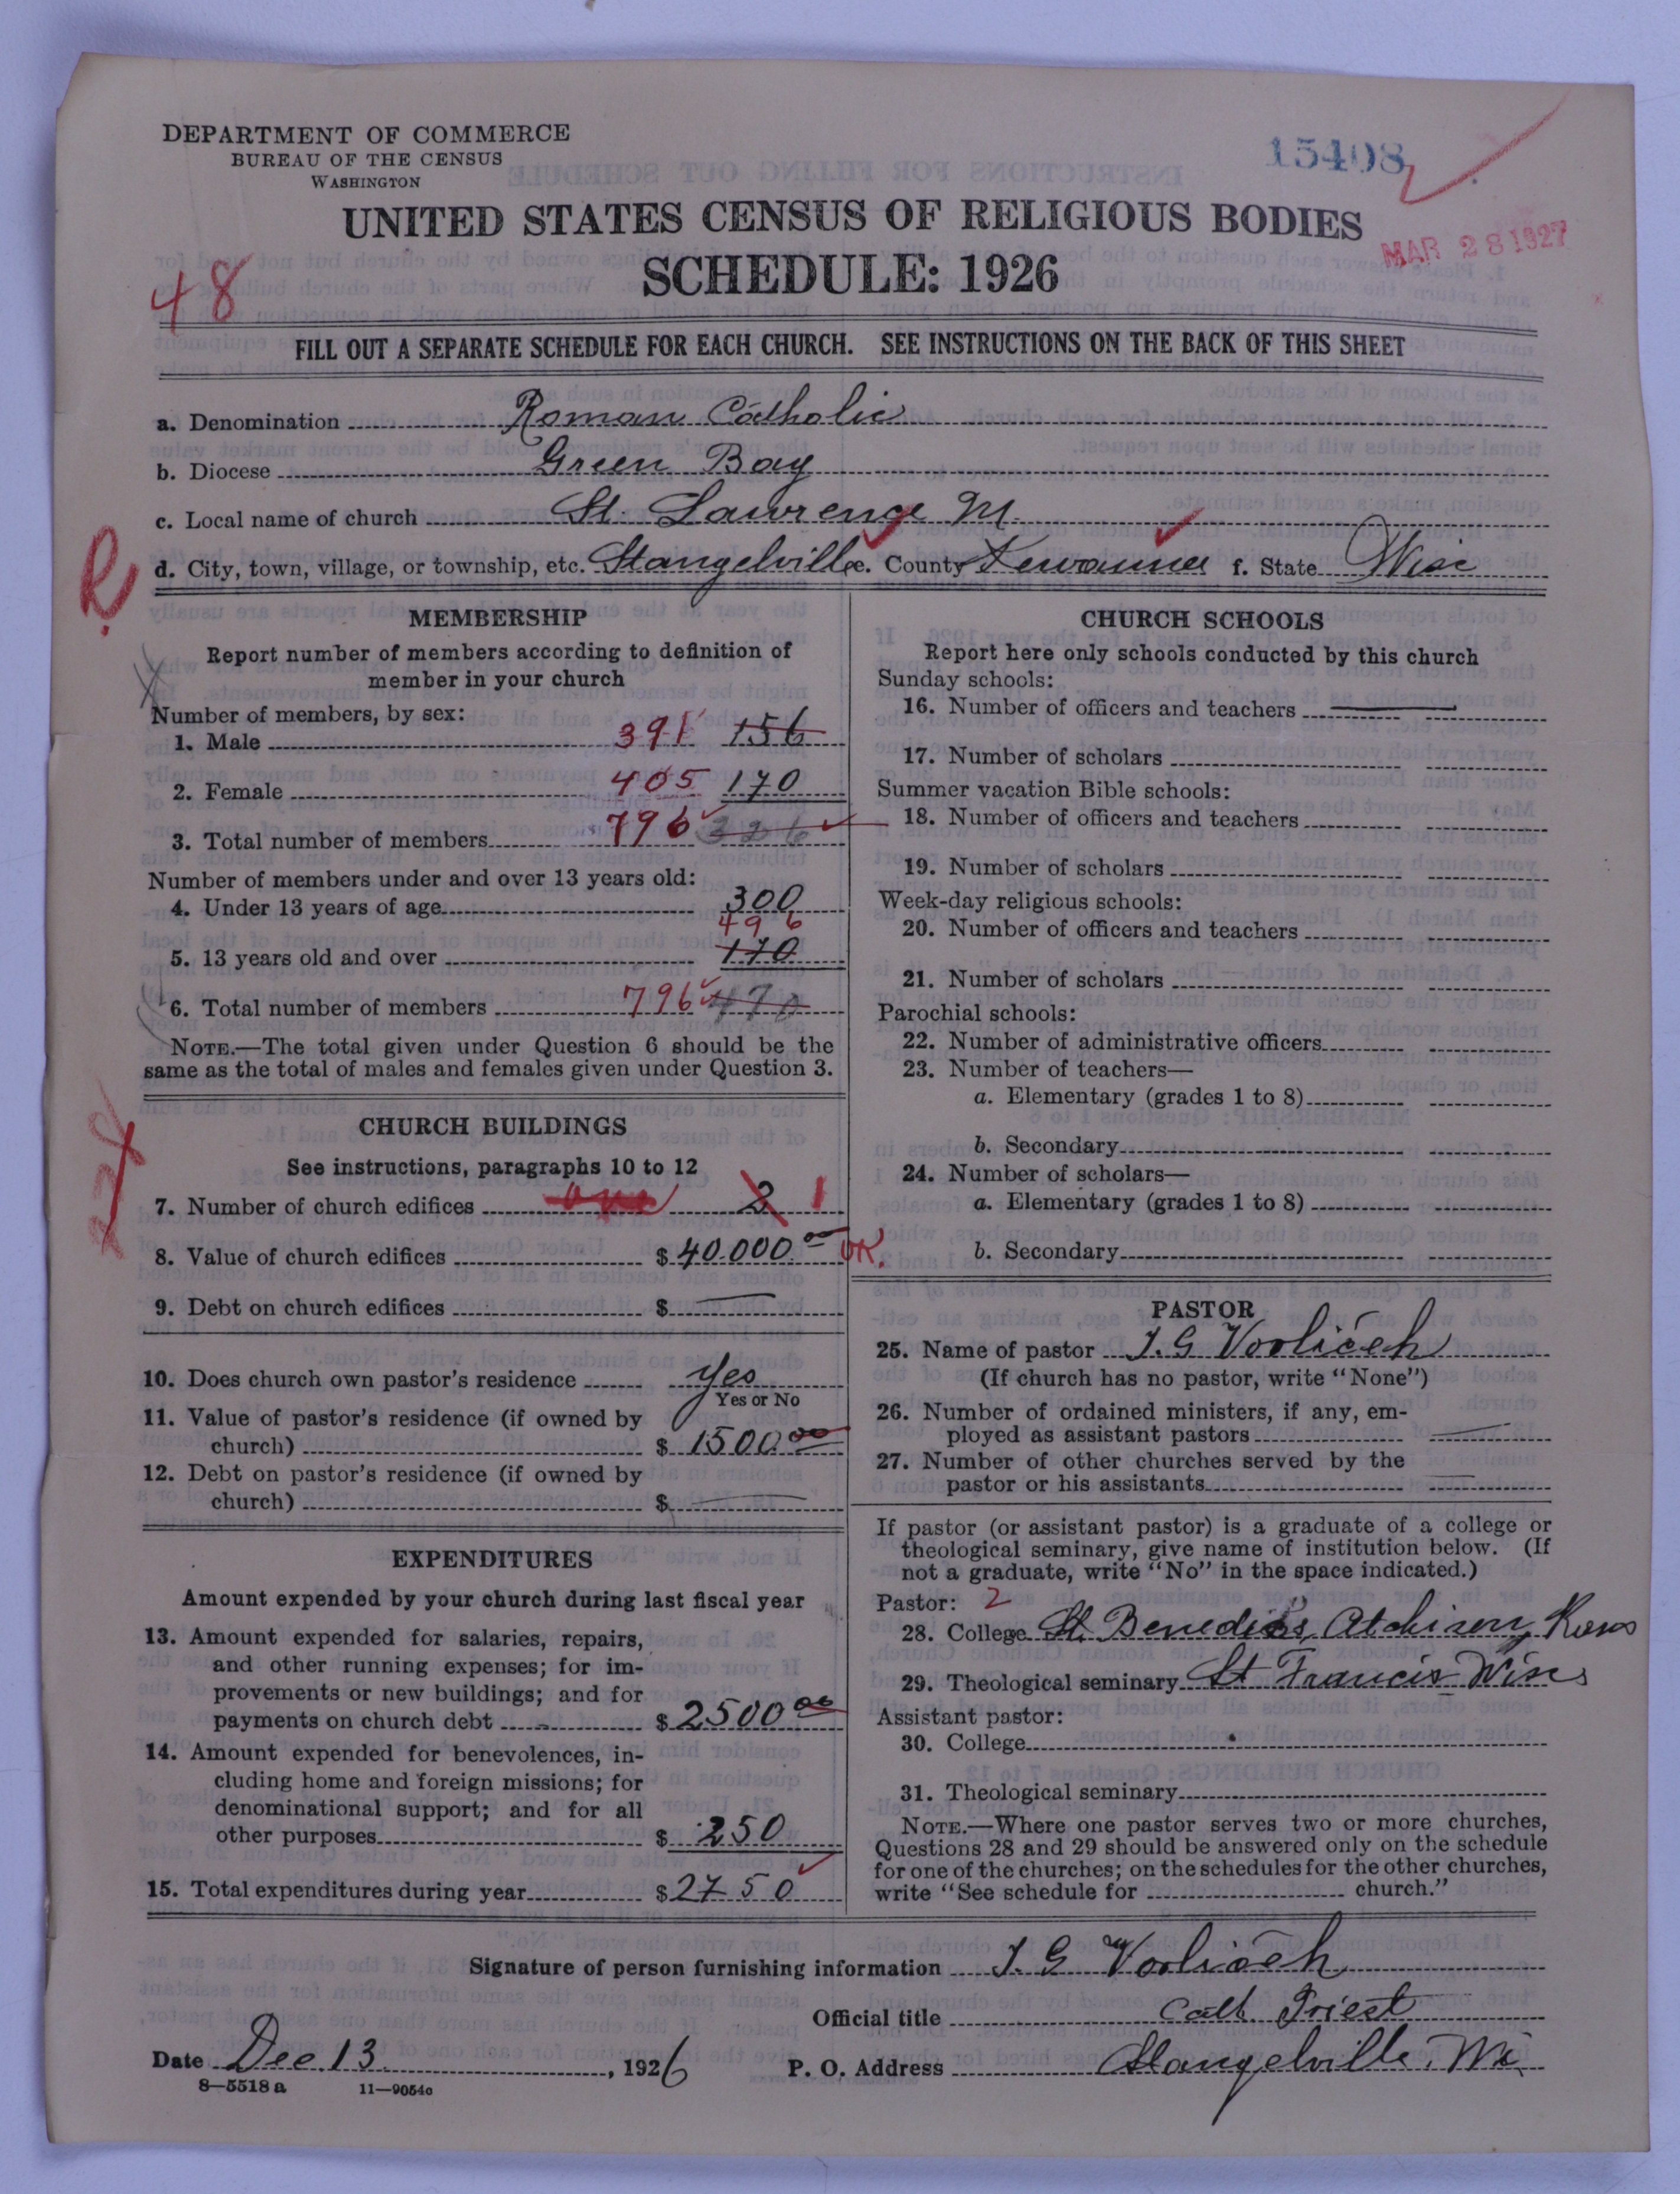 DEPARTMENT OF COMMERCE
BUREAU OF THE CENSUS
WASHINGTON
15408
UNITED STATES CENSUS OF RELIGIOUS BODIES
MAR 28 1927
SCHEDULE: 1926
48
FILL OUT A SEPARATE SCHEDULE FOR EACH CHURCH. SEE INSTRUCTIONS ON THE BACK OF THIS SHEET
a. Denomination Roman Catholic
b. Diocese Green Bay
c. Local name of church St. Lawrence M.
R
d. City, town, village, or township, etc. Stangelville e. County Kewaunee f. State Wisc
MEMBERSHIP
Report number of members according to definition of
member in your church
Number of members, by sex:
1. Male 391 156
2. Female 405 170
3. Total number of members 796 326
Number of members under and over 13 years old:
4. Under 13 years of age 300
496
5. 13 years old and over 170
6. Total number of members 796 470
NOTE.—The total given under Question 6 should be the
same as the total of males and females given under Question 3.
CHURCH BUILDINGS
See instructions, paragraphs 10 to 12
7. Number of church edifices one 2 1
8. Value of church edifices $ 40.000.00 OK.
9. Debt on church edifices $ —
10. Does church own pastor's residence Yes
Yes or No
11. Value of pastor's residence (if owned by
church) $ 1500.00
12. Debt on pastor's residence (if owned by
church) $ —
EXPENDITURES
Amount expended by your church during last fiscal year
13. Amount expended for salaries, repairs,
and other running expenses; for im-
provements or new buildings; and for
payments on church debt $ 2500 00
14. Amount expended for benevolences, in-
cluding home and foreign missions; for
denominational support; and for all
other purposes $ 250
15. Total expenditures during year $ 2750
CHURCH SCHOOLS
Report here only schools conducted by this church
Sunday schools:
16. Number of officers and teachers —
17. Number of scholars
Summer vacation Bible schools:
18. Number of officers and teachers
19. Number of scholars
Week-day religious schools:
20. Number of officers and teachers
21. Number of scholars
Parochial schools:
22. Number of administrative officers
23. Number of teachers—
a. Elementary (grades 1 to 8)
b. Secondary
24. Number of scholars—
a. Elementary (grades 1 to 8)
b. Secondary
PASTOR
25. Name of pastor J. G Vorliceh
(If church has no pastor, write "None")
26. Number of ordained ministers, if any, em-
ployed as assistant pastors —
27. Number of other churches served by the
pastor or his assistants —
If pastor (or assistant pastor) is a graduate of a college or
theological seminary, give name of institution below. (If
not a graduate, write "No" in the space indicated.)
Pastor: 2
28. College St. Benedicts, Atchison, Kans
29. Theological seminary St Francis Wisc
Assistant pastor:
30. College
31. Theological seminary
NOTE.—Where one pastor serves two or more churches,
Questions 28 and 29 should be answered only on the schedule
for one of the churches; on the schedules for the other churches,
write "See schedule for church."
Signature of person furnishing information J. G Vorliceh
Official title Cath. Priest
Date Dec. 13, 1926 P. O. Address Stangelville, Wi
8—5518 a 11—9054c